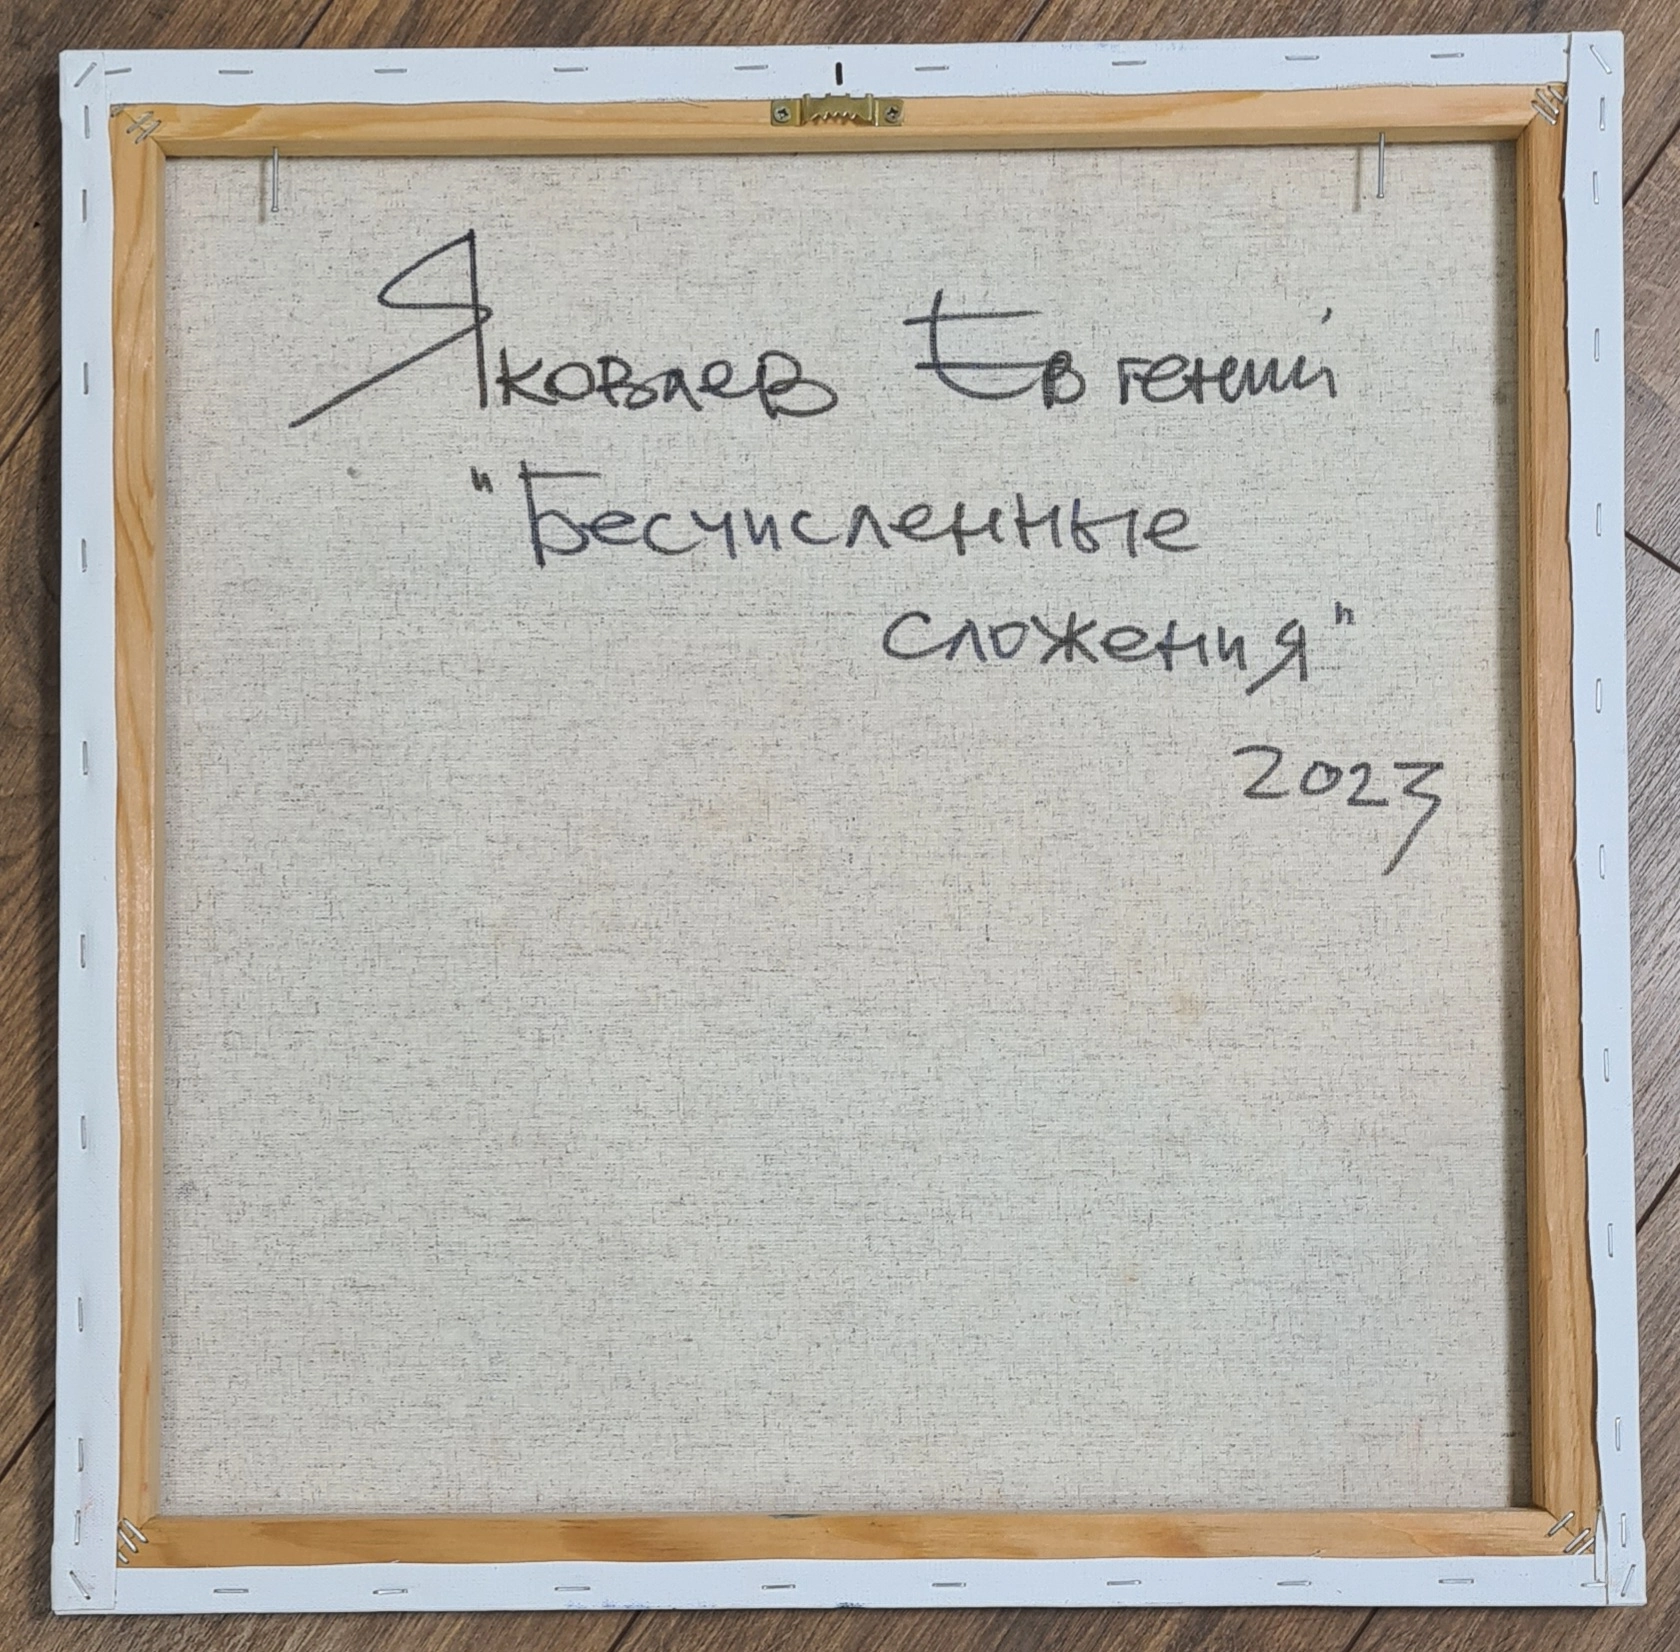 Яковлев Евгений
"Бесчисленные
сложения"
2023